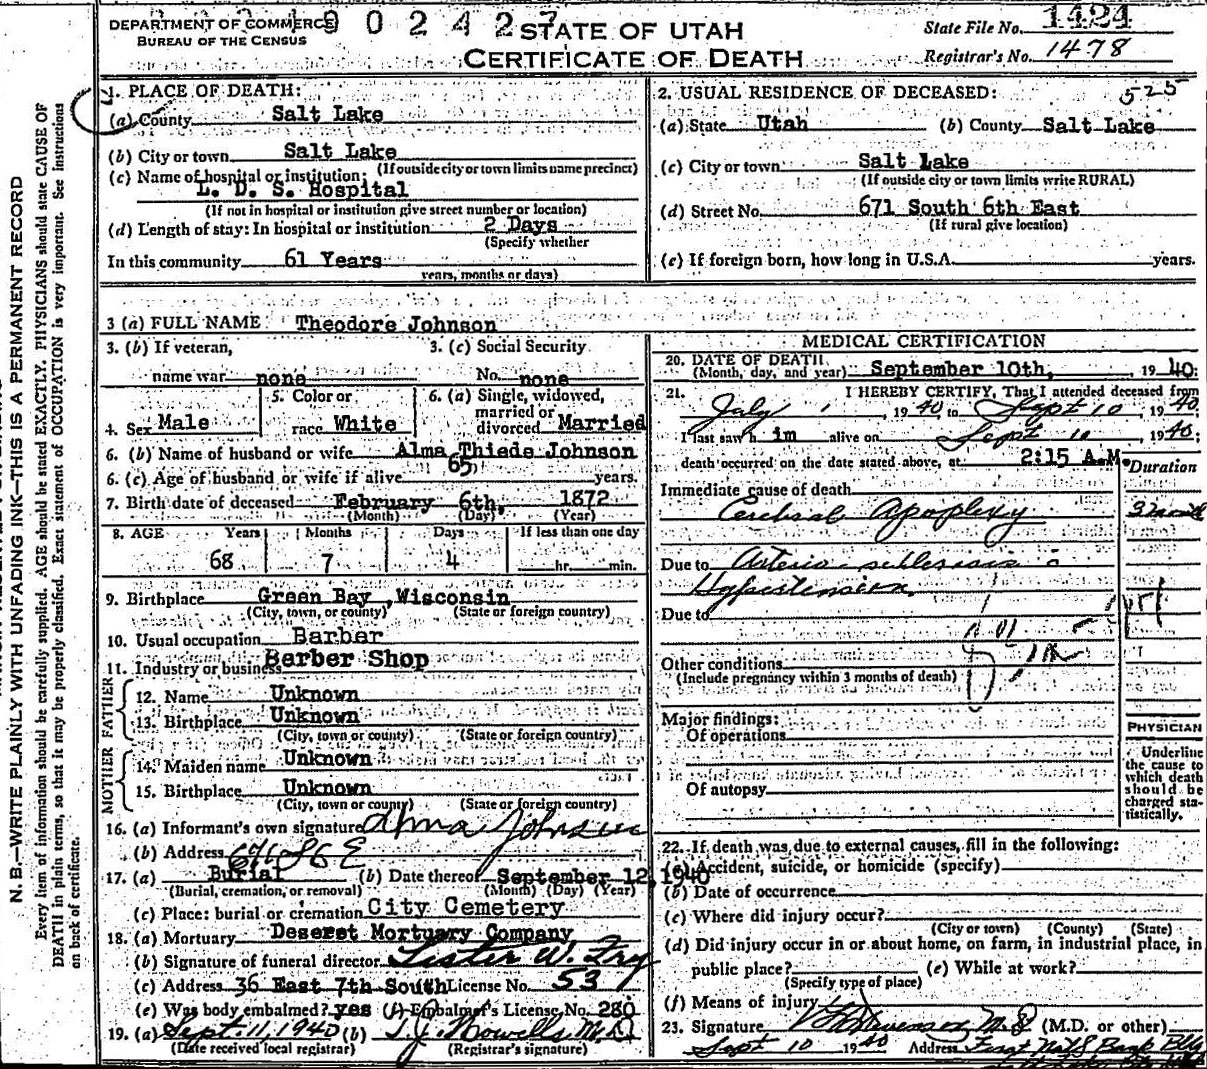 DEPARTMENT OF COMMERCE
BUREAU OF THE CENSUS
9 0 2 4 2 7
STATE OF UTAH
CERTIFICATE OF DEATH
State File No. 1424
Registrar's No. 1478
N. B.—WRITE PLAINLY WITH UNFADING INK—THIS IS A PERMANENT RECORD
Every item of information should be carefully supplied. AGE should be stated EXACTLY. PHYSICIANS should state CAUSE OF
DEATH in plain terms, so that it may be properly classified. Exact statement of OCCUPATION is very important. See instructions
on back of certificate.
1. PLACE OF DEATH:
(a) County Salt Lake
(b) City or town Salt Lake
(If outside city or town limits name precinct)
(c) Name of hospital or institution:
L. D. S. Hospital
(If not in hospital or institution give street number or location)
(d) Length of stay: In hospital or institution 2 Days
(Specify whether
In this community 61 Years
years, months or days)
2. USUAL RESIDENCE OF DECEASED: 525
(a) State Utah (b) County Salt Lake
(c) City or town Salt Lake
(If outside city or town limits write RURAL)
(d) Street No. 671 South 6th East
(If rural give location)
(e) If foreign born, how long in U.S.A. years.
3 (a) FULL NAME Theodore Johnson
3. (b) If veteran, 3. (c) Social Security
name war none No. none
4. Sex Male 5. Color or race White 6. (a) Single, widowed, married or divorced Married
6. (b) Name of husband or wife Alma Thiede Johnson
6. (c) Age of husband or wife if alive 65 years.
7. Birth date of deceased February 6th, 1872
(Month) (Day) (Year)
8. AGE Years Months Days If less than one day
68 7 4 hr. min.
9. Birthplace Green Bay, Wisconsin
(City, town, or county) (State or foreign country)
10. Usual occupation Barber
11. Industry or business Barber Shop
FATHER
12. Name Unknown
13. Birthplace Unknown
(City, town or county) (State or foreign country)
MOTHER
14. Maiden name Unknown
15. Birthplace Unknown
(City, town or county) (State or foreign country)
16. (a) Informant's own signature Alma Johnson
(b) Address 671 S 6 E
17. (a) Burial (b) Date thereof September 12, 1940
(Burial, cremation, or removal) (Month) (Day) (Year)
(c) Place: burial or cremation City Cemetery
18. (a) Mortuary Deseret Mortuary Company
(b) Signature of funeral director Lister W. Fry
(c) Address 36 East 7th South License No. 537
(e) Was body embalmed? yes (f) Embalmer's License No. 280
19. (a) Sept. 11, 1940 (b) T. J. Howells M.D.
(Date received local registrar) (Registrar's signature)
MEDICAL CERTIFICATION
20. DATE OF DEATH
(Month, day, and year) September 10th, 1940:
21. I HEREBY CERTIFY, That I attended deceased from
July 1, 1940 to Sept 10, 1940.
I last saw h im alive on Sept 10, 1940;
death occurred on the date stated above, at 2:15 A.M. Duration
Immediate cause of death
Cerebral Apoplexy
Due to Arterio-sclerosis
Hypertension
Due to
Other conditions
(Include pregnancy within 3 months of death)
Major findings:
Of operations
Of autopsy
PHYSICIAN
Underline
the cause to
which death
should be
charged sta-
tistically.
22. If death was due to external causes, fill in the following:
(a) Accident, suicide, or homicide (specify)
(b) Date of occurrence
(c) Where did injury occur?
(City or town) (County) (State)
(d) Did injury occur in or about home, on farm, in industrial place, in
public place? (e) While at work?
(Specify type of place)
(f) Means of injury
23. Signature M.D. (M.D. or other)
Sept 10 1940 Address First Natl Bank Bldg